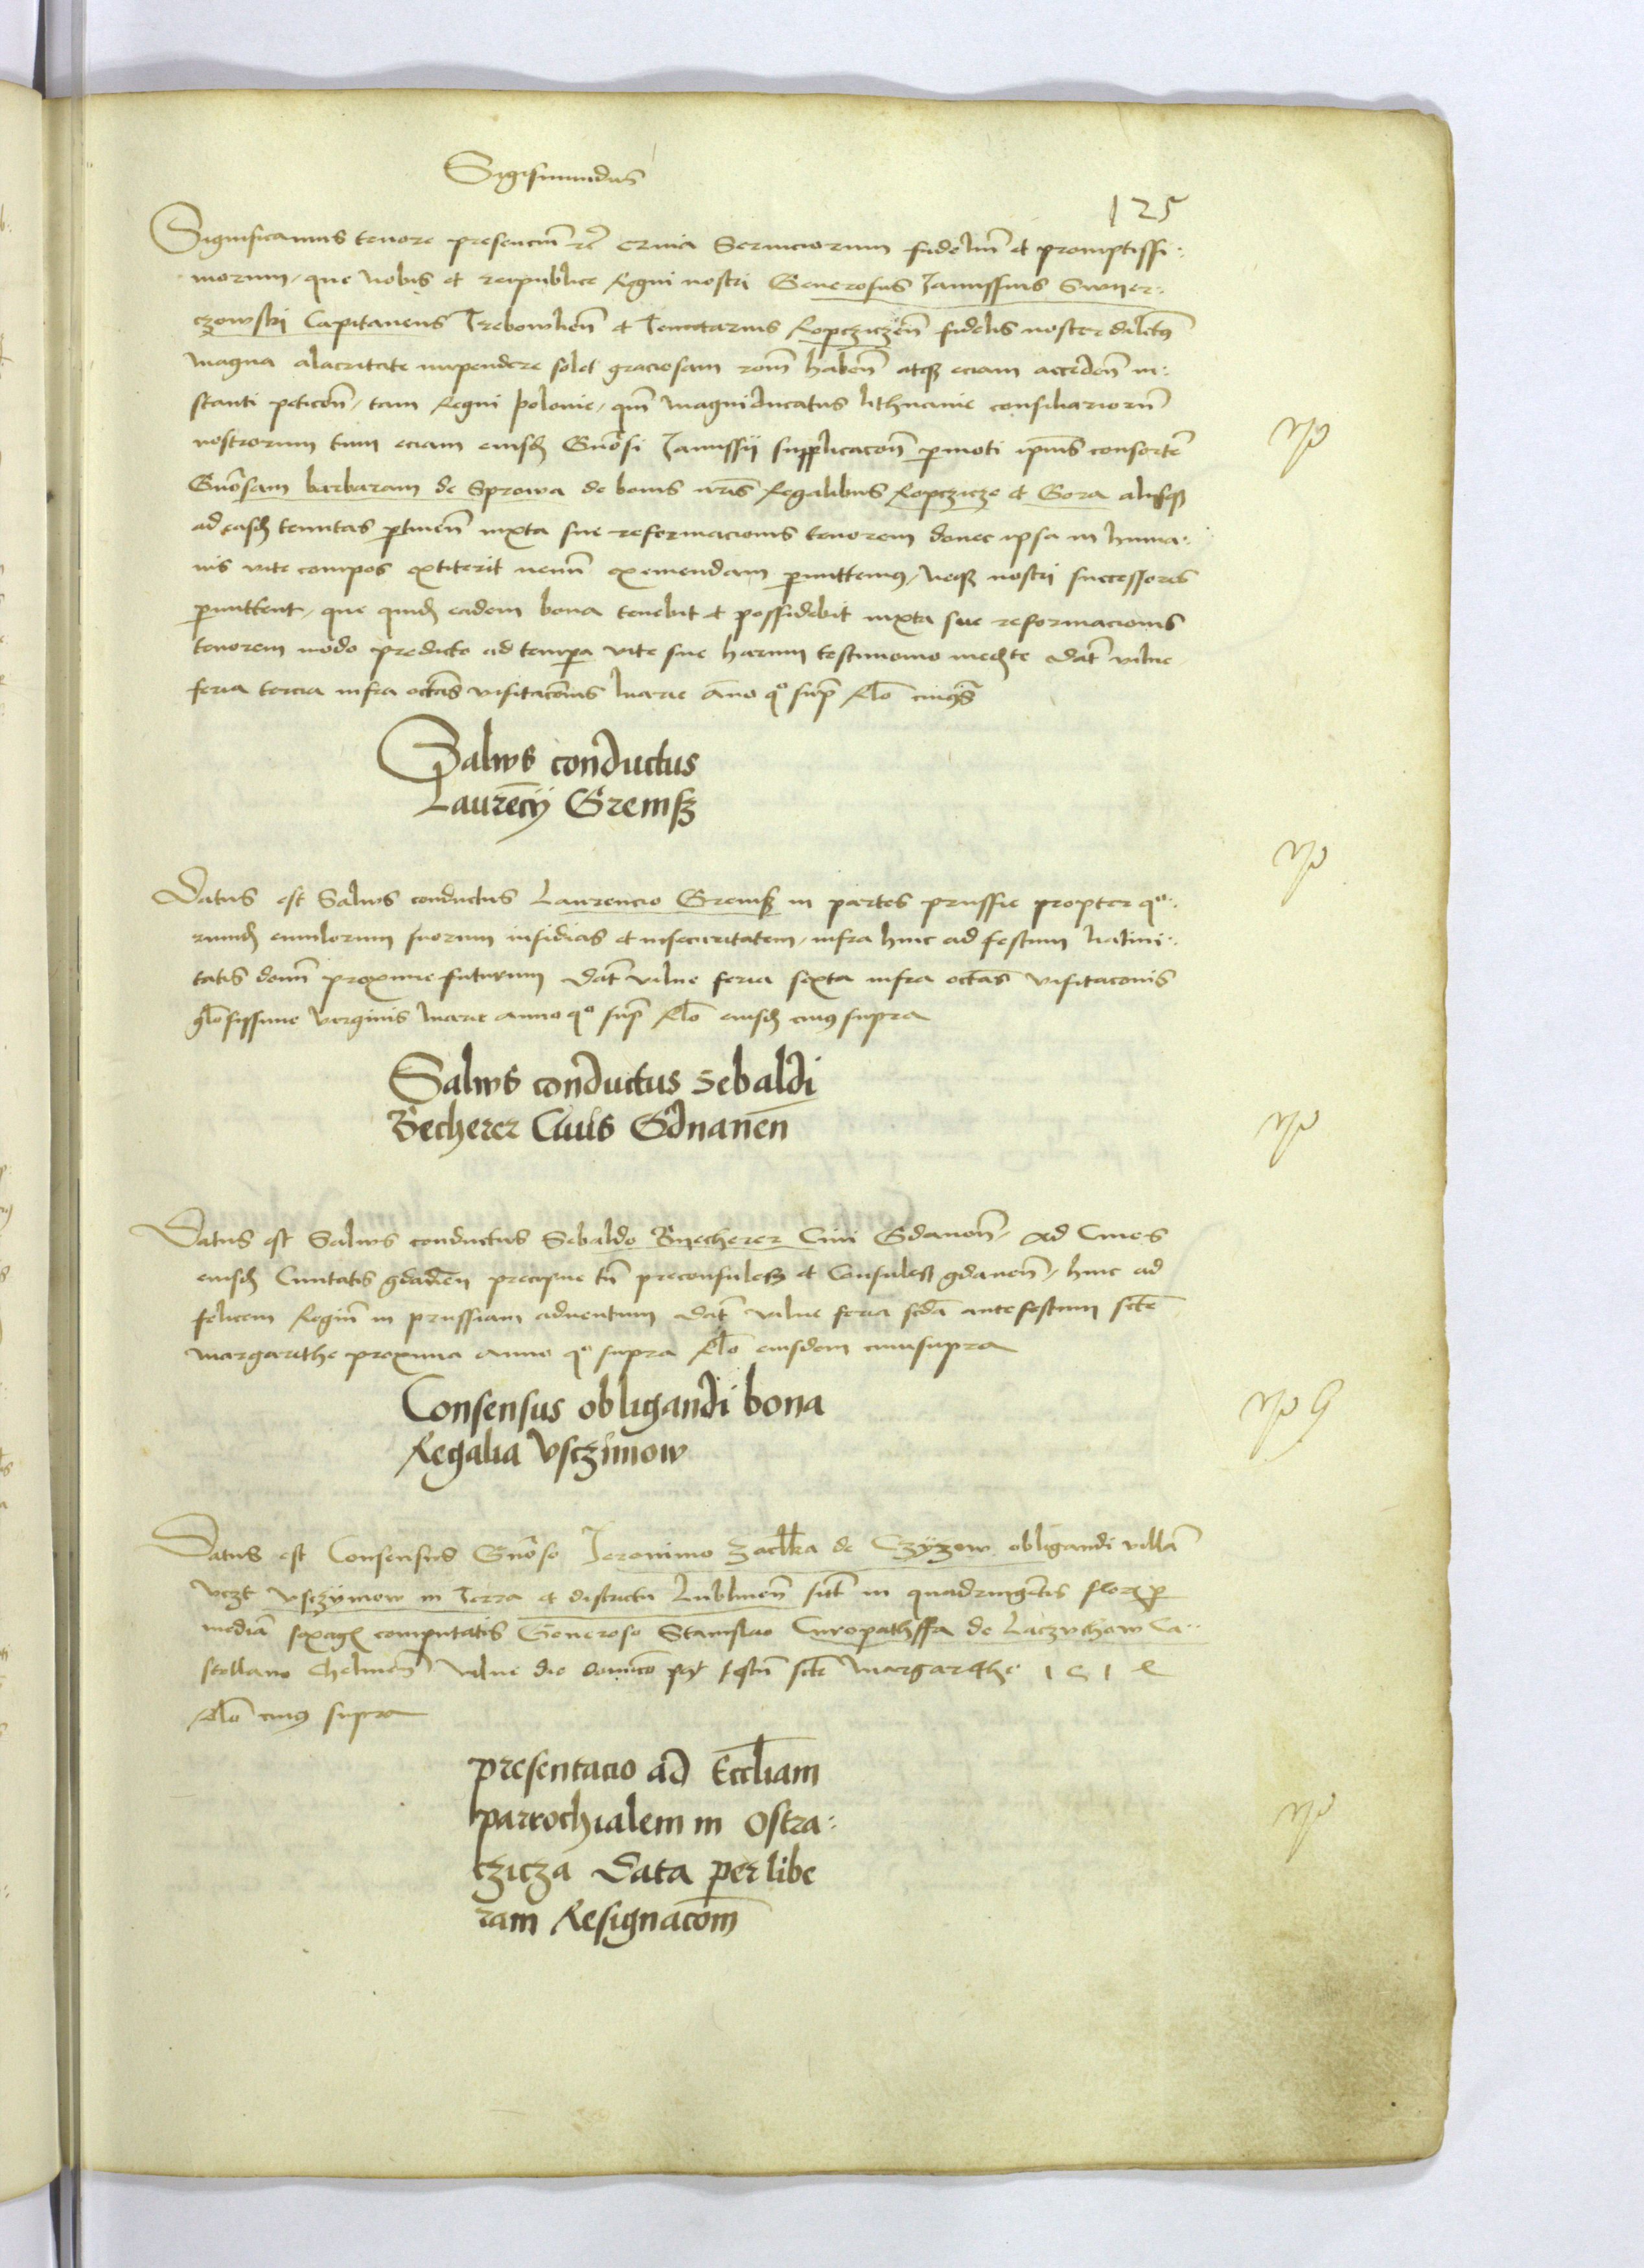 Sigismundus
125
Significamus tenore presencium etc Quia Serviciorum fidelium et promptissi:
morum, que Nobis et reipublice Regni nostri Generosus Janussius Swyer:
czowski Capitaneus Trebowlien et Tenutarius Ropcziczen fidelis noster dilectus
magna alacritate impendere solet graciosam rom haben atque eciam acceden in:
stanti peticon, tam Regni polonie, quam magniducatus lithuanie consiliariorum
nostrorum tum eciam eiusdem Gnosi Janussii supplicacon permoti ipius consortem
Gnosam barbaram de Sprowa de bonis nris Regalibus Ropczicze et Gora aliisque
ad easdem tenutas ptinen iuxta sue reformacionis tenorem donec ipsa in huma:
nis vite compos extiterit nemini exemendam permittemus, Neque nostri successores
permittent, que quidem eadem bona tenebit et possidebit iuxta sue reformacionis
tenorem modo predicto ad tempora vite sue harum testimonio mediante Dat vilne
feria tercia infra octas visitaconis Marie Anno quo supra Rlo cuius supra
Salvus conductus
Laurecij Gremsz
Datus est Salvus conductus Laurencio Gremsz in partes prussie propter quo:
rundem emulorum suorum insidias et insecuritatem, infra hinc ad festum Nativi:
tatis domini proxime futurum Dat vilne feria sexta infra octas visitaconis
glosissime virginis Marie anno quo supra Rlo eiusdem cuius supra
Salvus conductus Sebaldi
Becherer Civis Gdnanen
Datus est Salvus conductus Sebaldo Byecherer Civi Gdanen, ad Cives
eiusdem Civitatis precipue tn preconsules et Consules gdanen, hinc ad
felicem Regium in prussiam adventum Dat vilne feria scda ante festum scte
Margarethe proxima anno quo supra Rlo eiusdem cuiussupra
Consensus obligandi bona
Regalia Vsczimow
Datus est Consensus Gnoso Jeronimo Zaclika de Czyzow obligandi villa
Vczt Vsczymow in Terra et districtu Lublinen sitt in quadringentis flor per
media sexage computatis Generoso Stanislao Curopathffa de Laczuchow Ca:
stellano Chelmen Vilne die dominico post festum scte Margarethe
Rlo cuius supra
presentacio ad Eccliam
parrochialem in Ostra:
czicza Data per libe
ram Resignacom